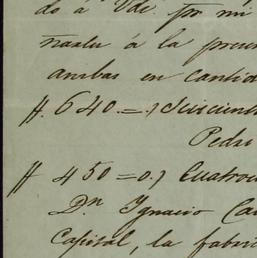 do á Vde por mi
á la presen
ambas en cantid
#. 640 = .) Seiscient
Pedro
# 450 = 0.) Cuatroc
Dn Ignacio Ca
Capital, la fabri